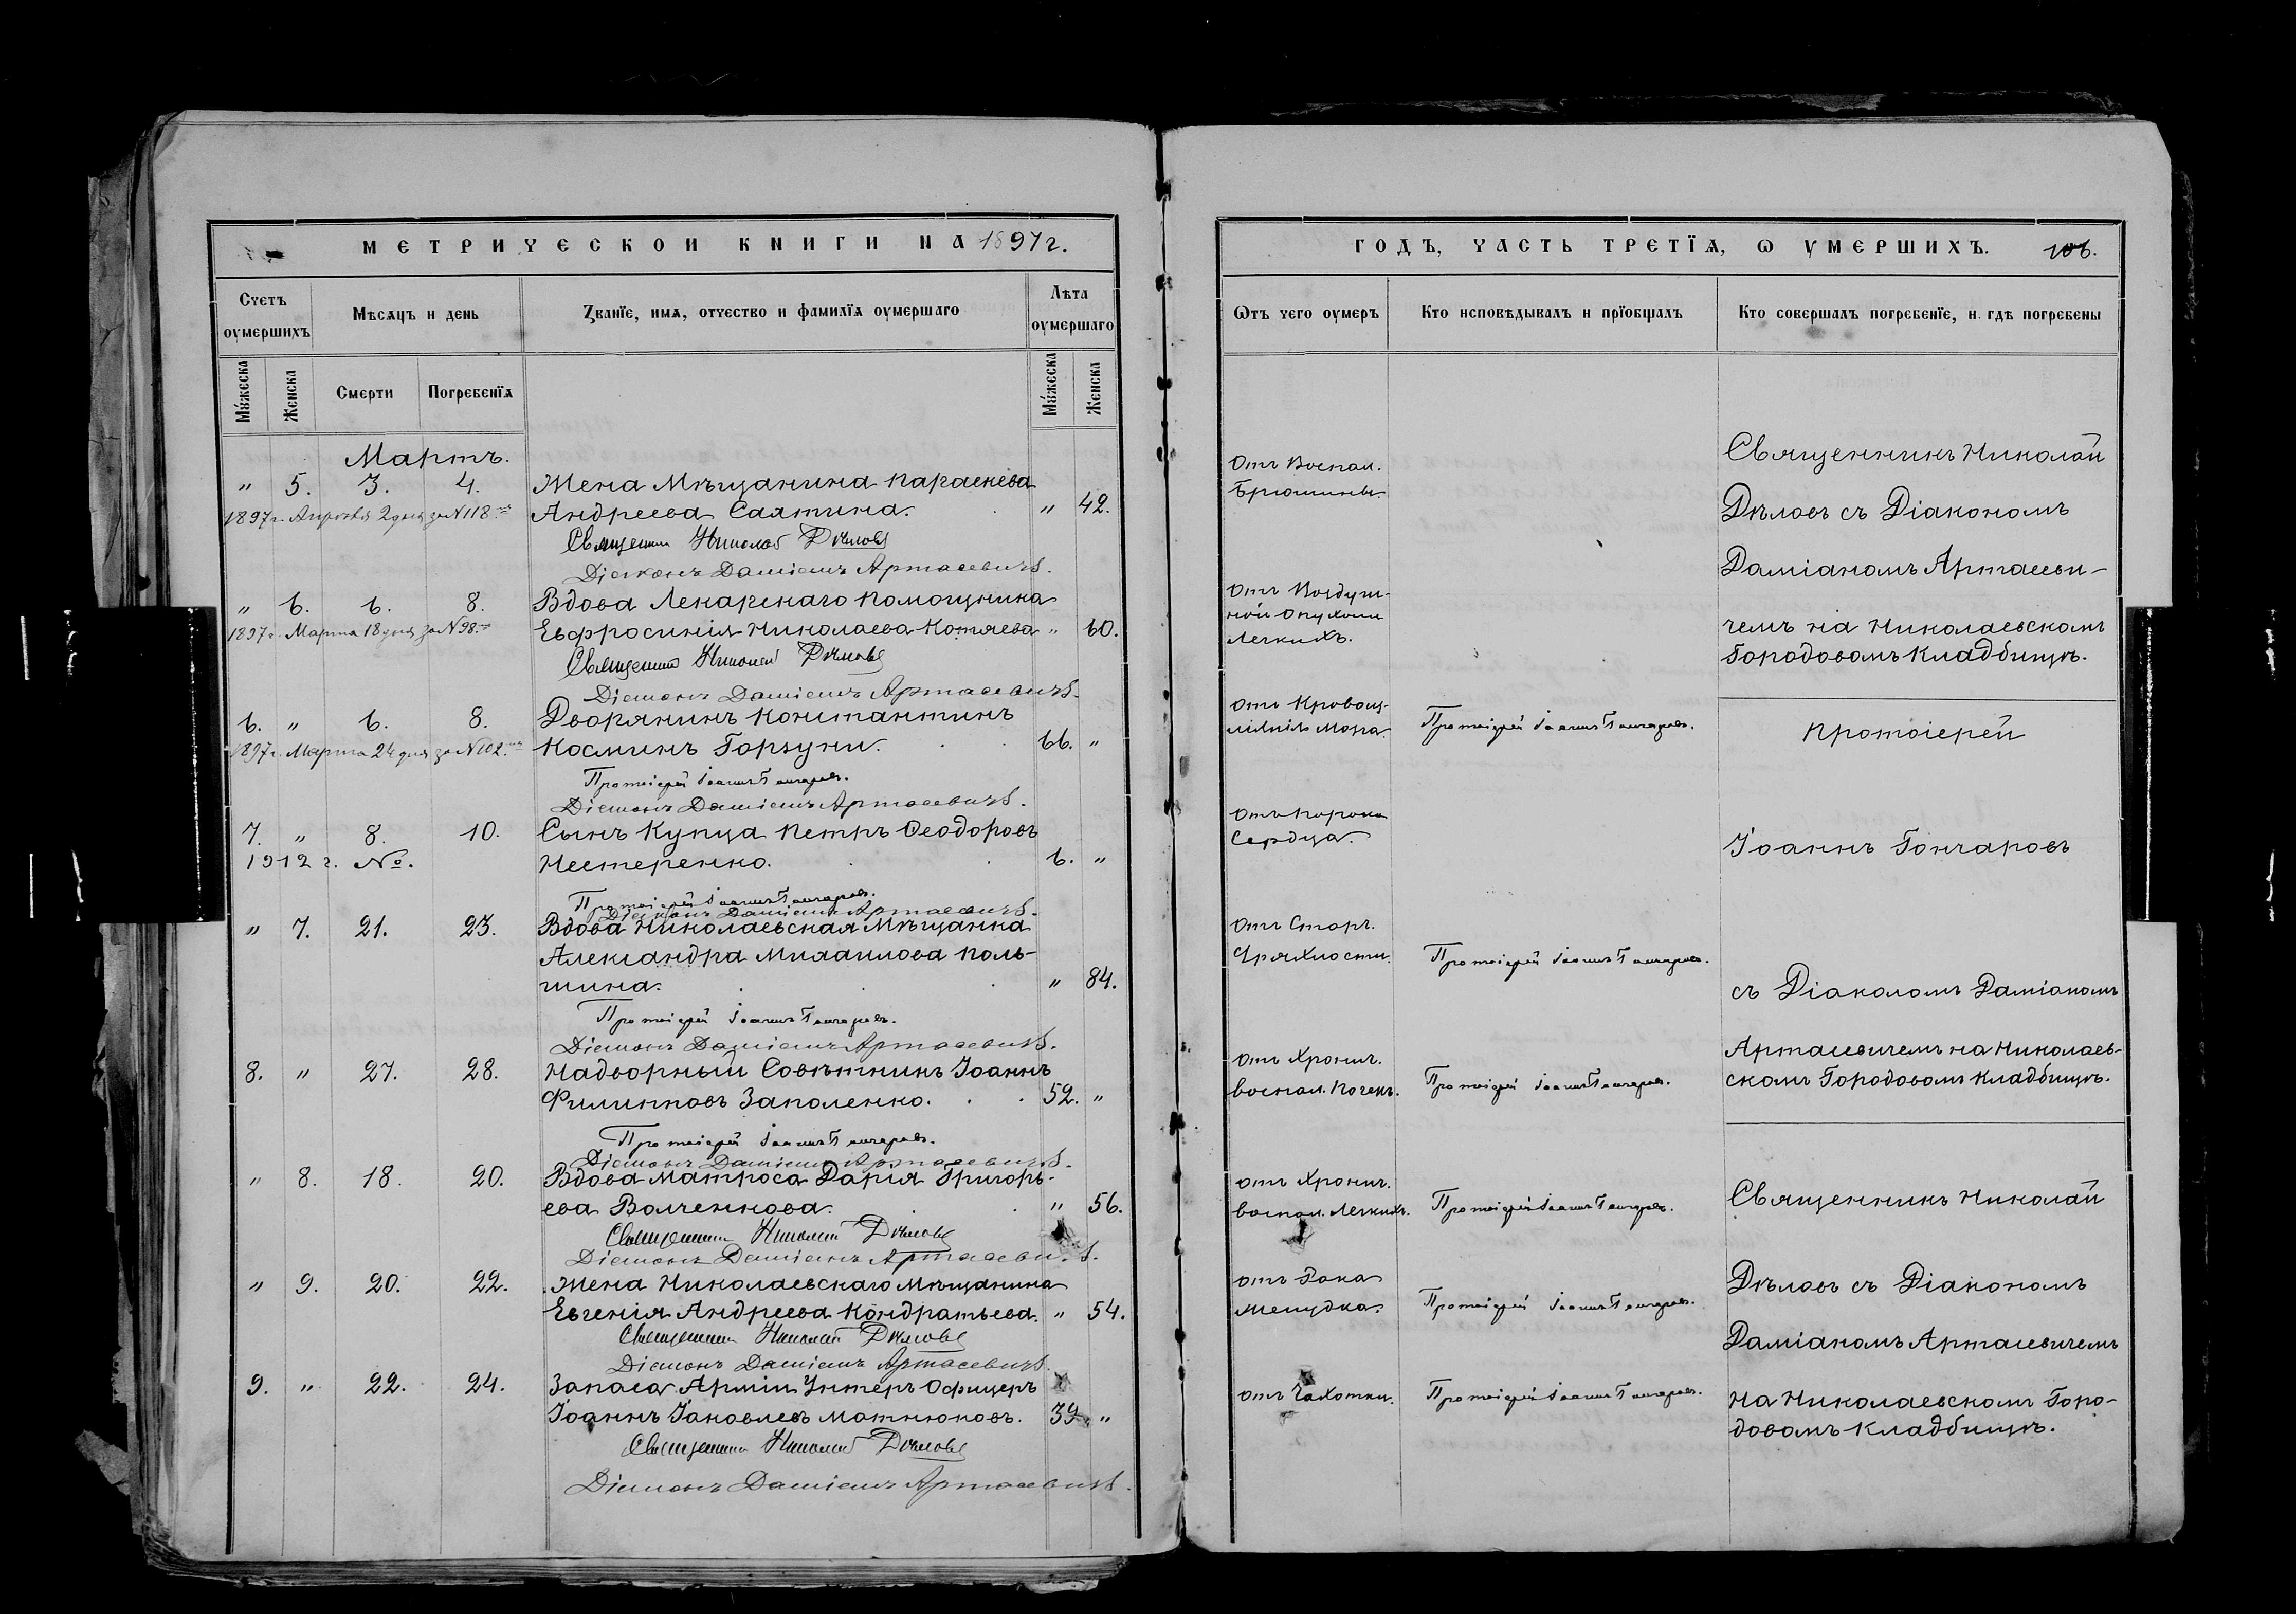 МЕТРИЧЕСКОЙ КНИГИ НА 1897 г.
Счетъ оумершихъ
Мѣсяцъ и день
Званїе, имя, отчество и фамилїя оумершаго
Лѣта оумершаго
Мужеска
Женска
Смерти
Погребенїя
Мужеска
Женска
Мартъ.
" 5. 3. 4. Жена Мѣщанина Параскева
1897 г. Апрѣля 2 дня за № 118 Андреева Саятина. " 42.
Священникъ Николай Дѣловъ
Діаконъ Даміанъ Артасевичъ.
" 6. 6. 8. Вдова Лекарскаго Помощника
1897 г. Марта 18 дня за № 98 Евфросинія Николаева Котяева " 60.
Священникъ Николай Дѣловъ
Діаконъ Даміанъ Артасевичъ.
6. " 6. 8. Дворянинъ Константинъ
1897 г. Марта 24 дня за № 102 Косминъ Горзуни. 66. "
Протоіерей Іоаннъ Гончаровъ.
Діаконъ Даміанъ Артасевичъ.
7. " 8. 10. Сынъ Купца Петръ Ѳеодоровъ
1912 г. №. Нестеренко. 6. "
Протоіерей Іоаннъ Гончаровъ.
Діаконъ Даміанъ Артасевичъ.
" 7. 21. 23. Вдова Николаевская Мѣщанка
Александра Михаилова Поль-
шина. " 84.
Протоіерей Іоаннъ Гончаровъ.
Діаконъ Даміанъ Артасевичъ.
8. " 27. 28. Надворный Совѣтникъ Іоаннъ
Филипповъ Заполенко. 52. "
Протоіерей Іоаннъ Гончаровъ.
Діаконъ Даміанъ Артасевичъ.
" 8. 18. 20. Вдова Матроса Дарія Григорь-
ева Волченкова. " 56.
Священникъ Николай Дѣловъ
Діаконъ Даміанъ Артасеви
" 9. 20. 22. Жена Николаевскаго Мѣщанина
Евгенія Андреева Кондратьева. " 54.
Священникъ Николай Дѣловъ
Діаконъ Даміанъ Артасевичъ.
9. " 22. 24. Запаса Арміи Унтеръ Офицеръ
Іоаннъ Іаковлевъ Матнюковъ. 39. "
Священникъ Николай Дѣловъ
Діаконъ Даміанъ Артасевичъ.
ГОДЪ, ЧАСТЬ ТРЕТЇЯ, Ѡ УМЕРШИХЪ. 106.
Ѿтъ чего оумеръ
Кто исповѣдывалъ и прїобщалъ
Кто совершалъ погребенїе, и гдѣ погребены
Отъ Воспал.
Брюшины.
Отъ Воздуш-
ной Опухоли
Легкихъ.
Отъ Кровоиз-
ліянія Мозга.
Протоіерей Іоаннъ Гончаровъ.
Отъ Порока
Сердца.
Отъ Старч.
Дряхлости.
Протоіерей Іоаннъ Гончаровъ.
Отъ Хронич.
воспал. Почекъ.
Протоіерей Іоаннъ Гончаровъ.
Отъ Хронич.
воспал. Легкихъ.
Протоіерей Іоаннъ Гончаровъ.
Отъ Рака
Желудка.
Протоіерей Іоаннъ Гончаровъ.
Отъ Чахотки.
Протоіерей Іоаннъ Гончаровъ.
Священникъ Николай
Дѣловъ съ Діакономъ
Даміаномъ Артасеви-
чемъ на Николаевскомъ
Городовомъ Кладбищѣ.
Протоіерей
Іоаннъ Гончаровъ
съ Діакономъ Даміаномъ
Артасевичемъ на Николаев-
скомъ Городовомъ Кладбищѣ.
Священникъ Николай
Дѣловъ съ Діакономъ
Даміаномъ Артасевичемъ
на Николаевскомъ Горо-
довомъ Кладбищѣ.